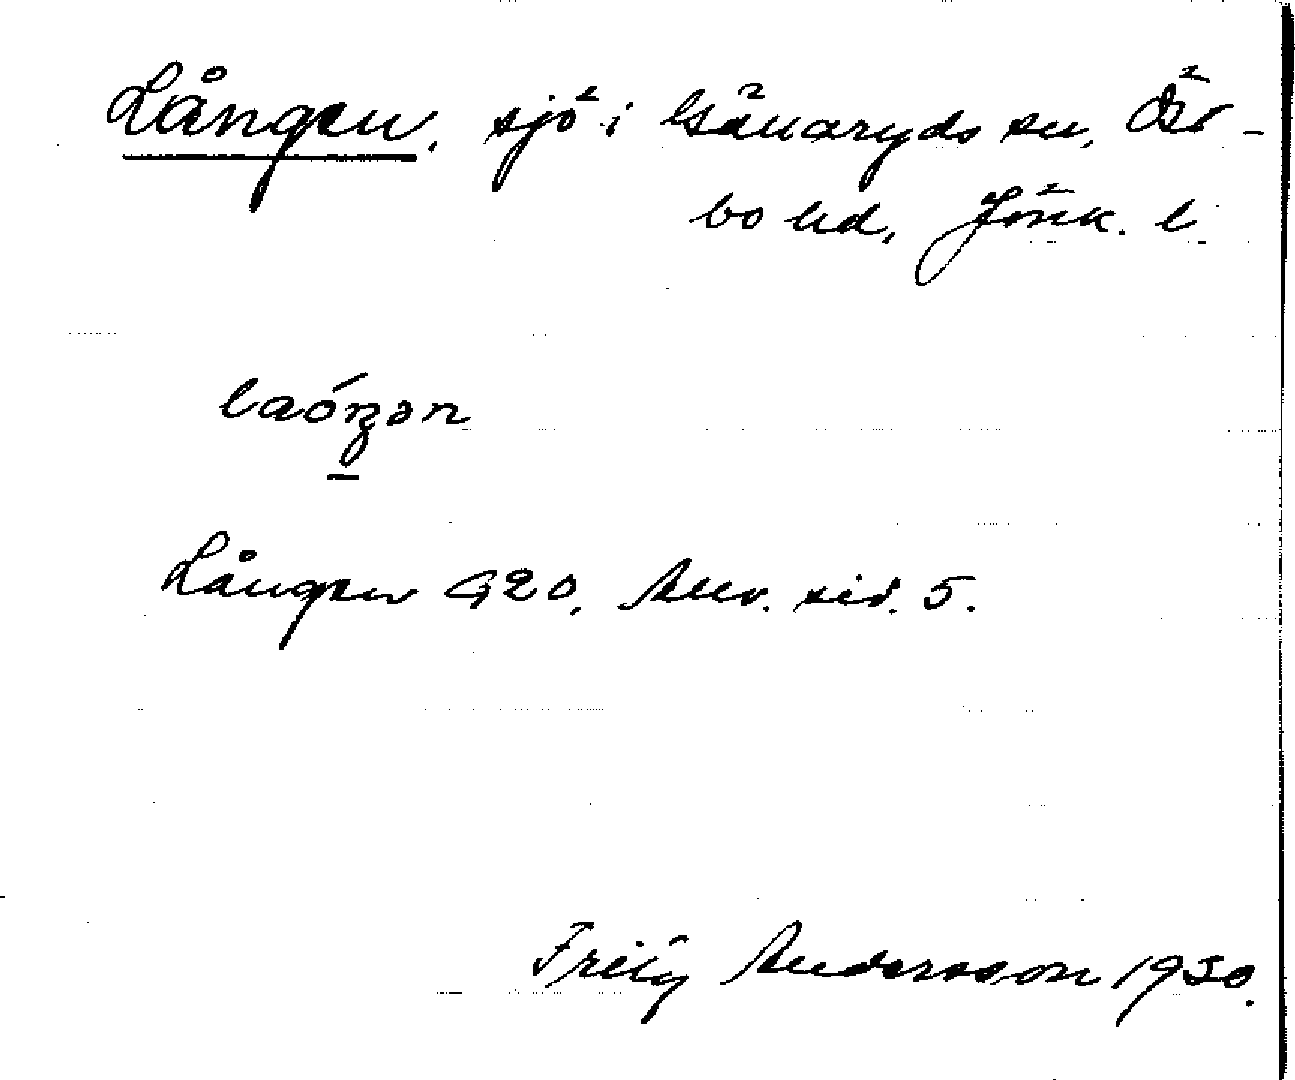 Lången, sjö i Gällaryds sn, Öst-
bo hd, Jönk. l.
laóŋən
Lången G 20, Anv. sid. 5.
Fritz Andersson 1930.